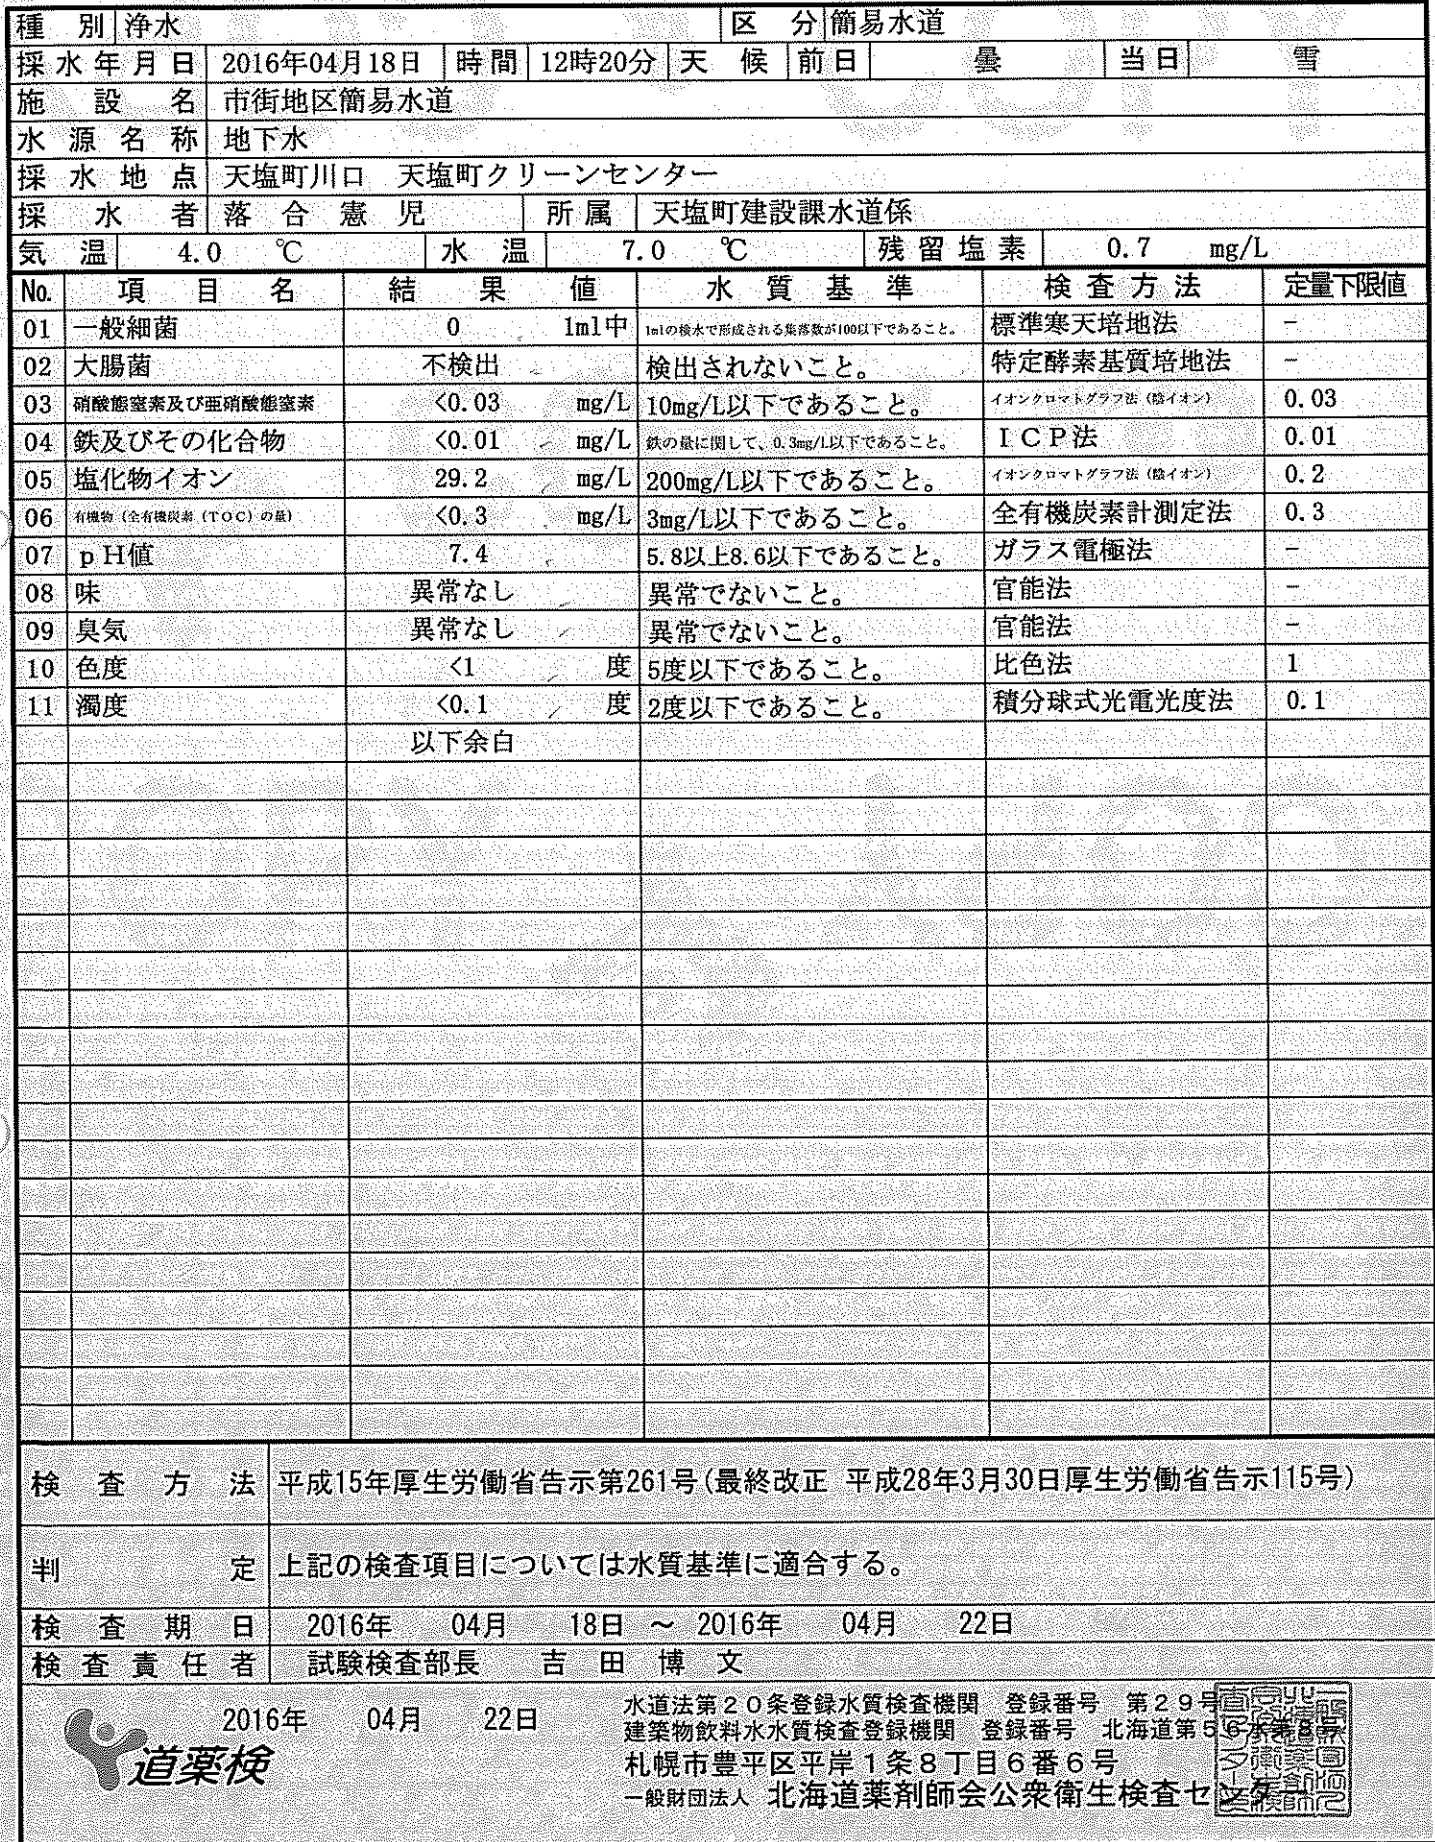 種別 浄水 区分 簡易水道
採水年月日 2016年04月18日 時間 12時20分 天候 前日 曇 当日 雪
施設名 市街地区簡易水道
水源名称 地下水
採水地点 天塩町川口 天塩町クリーンセンター
採水者 落合憲児 所属 天塩町建設課水道係
気温 4.0 ℃ 水温 7.0 ℃ 残留塩素 0.7 mg/L
No. 項目名 結果値 水質基準 検査方法 定量下限値
01 一般細菌 0 1ml中 1mlの検水で形成される集落数が100以下であること。 標準寒天培地法 -
02 大腸菌 不検出 検出されないこと。 特定酵素基質培地法 -
03 硝酸態窒素及び亜硝酸態窒素 <0.03 mg/L 10mg/L以下であること。 イオンクロマトグラフ法（陰イオン） 0.03
04 鉄及びその化合物 <0.01 mg/L 鉄の量に関して、0.3mg/L以下であること。 ＩＣＰ法 0.01
05 塩化物イオン 29.2 mg/L 200mg/L以下であること。 イオンクロマトグラフ法（陰イオン） 0.2
06 有機物（全有機炭素（ＴＯＣ）の量） <0.3 mg/L 3mg/L以下であること。 全有機炭素計測定法 0.3
07 ｐＨ値 7.4 5.8以上8.6以下であること。 ガラス電極法 -
08 味 異常なし 異常でないこと。 官能法 -
09 臭気 異常なし 異常でないこと。 官能法 -
10 色度 <1 度 5度以下であること。 比色法 1
11 濁度 <0.1 度 2度以下であること。 積分球式光電光度法 0.1
以下余白
検査方法 平成15年厚生労働省告示第261号(最終改正 平成28年3月30日厚生労働省告示115号)
判定 上記の検査項目については水質基準に適合する。
検査期日 2016年 04月 18日 ～ 2016年 04月 22日
検査責任者 試験検査部長 吉田博文
2016年 04月 22日
道薬検
水道法第２０条登録水質検査機関 登録番号 第２９号
建築物飲料水水質検査登録機関 登録番号 北海道第５６水第８号
札幌市豊平区平岸１条８丁目６番６号
一般財団法人 北海道薬剤師会公衆衛生検査センター